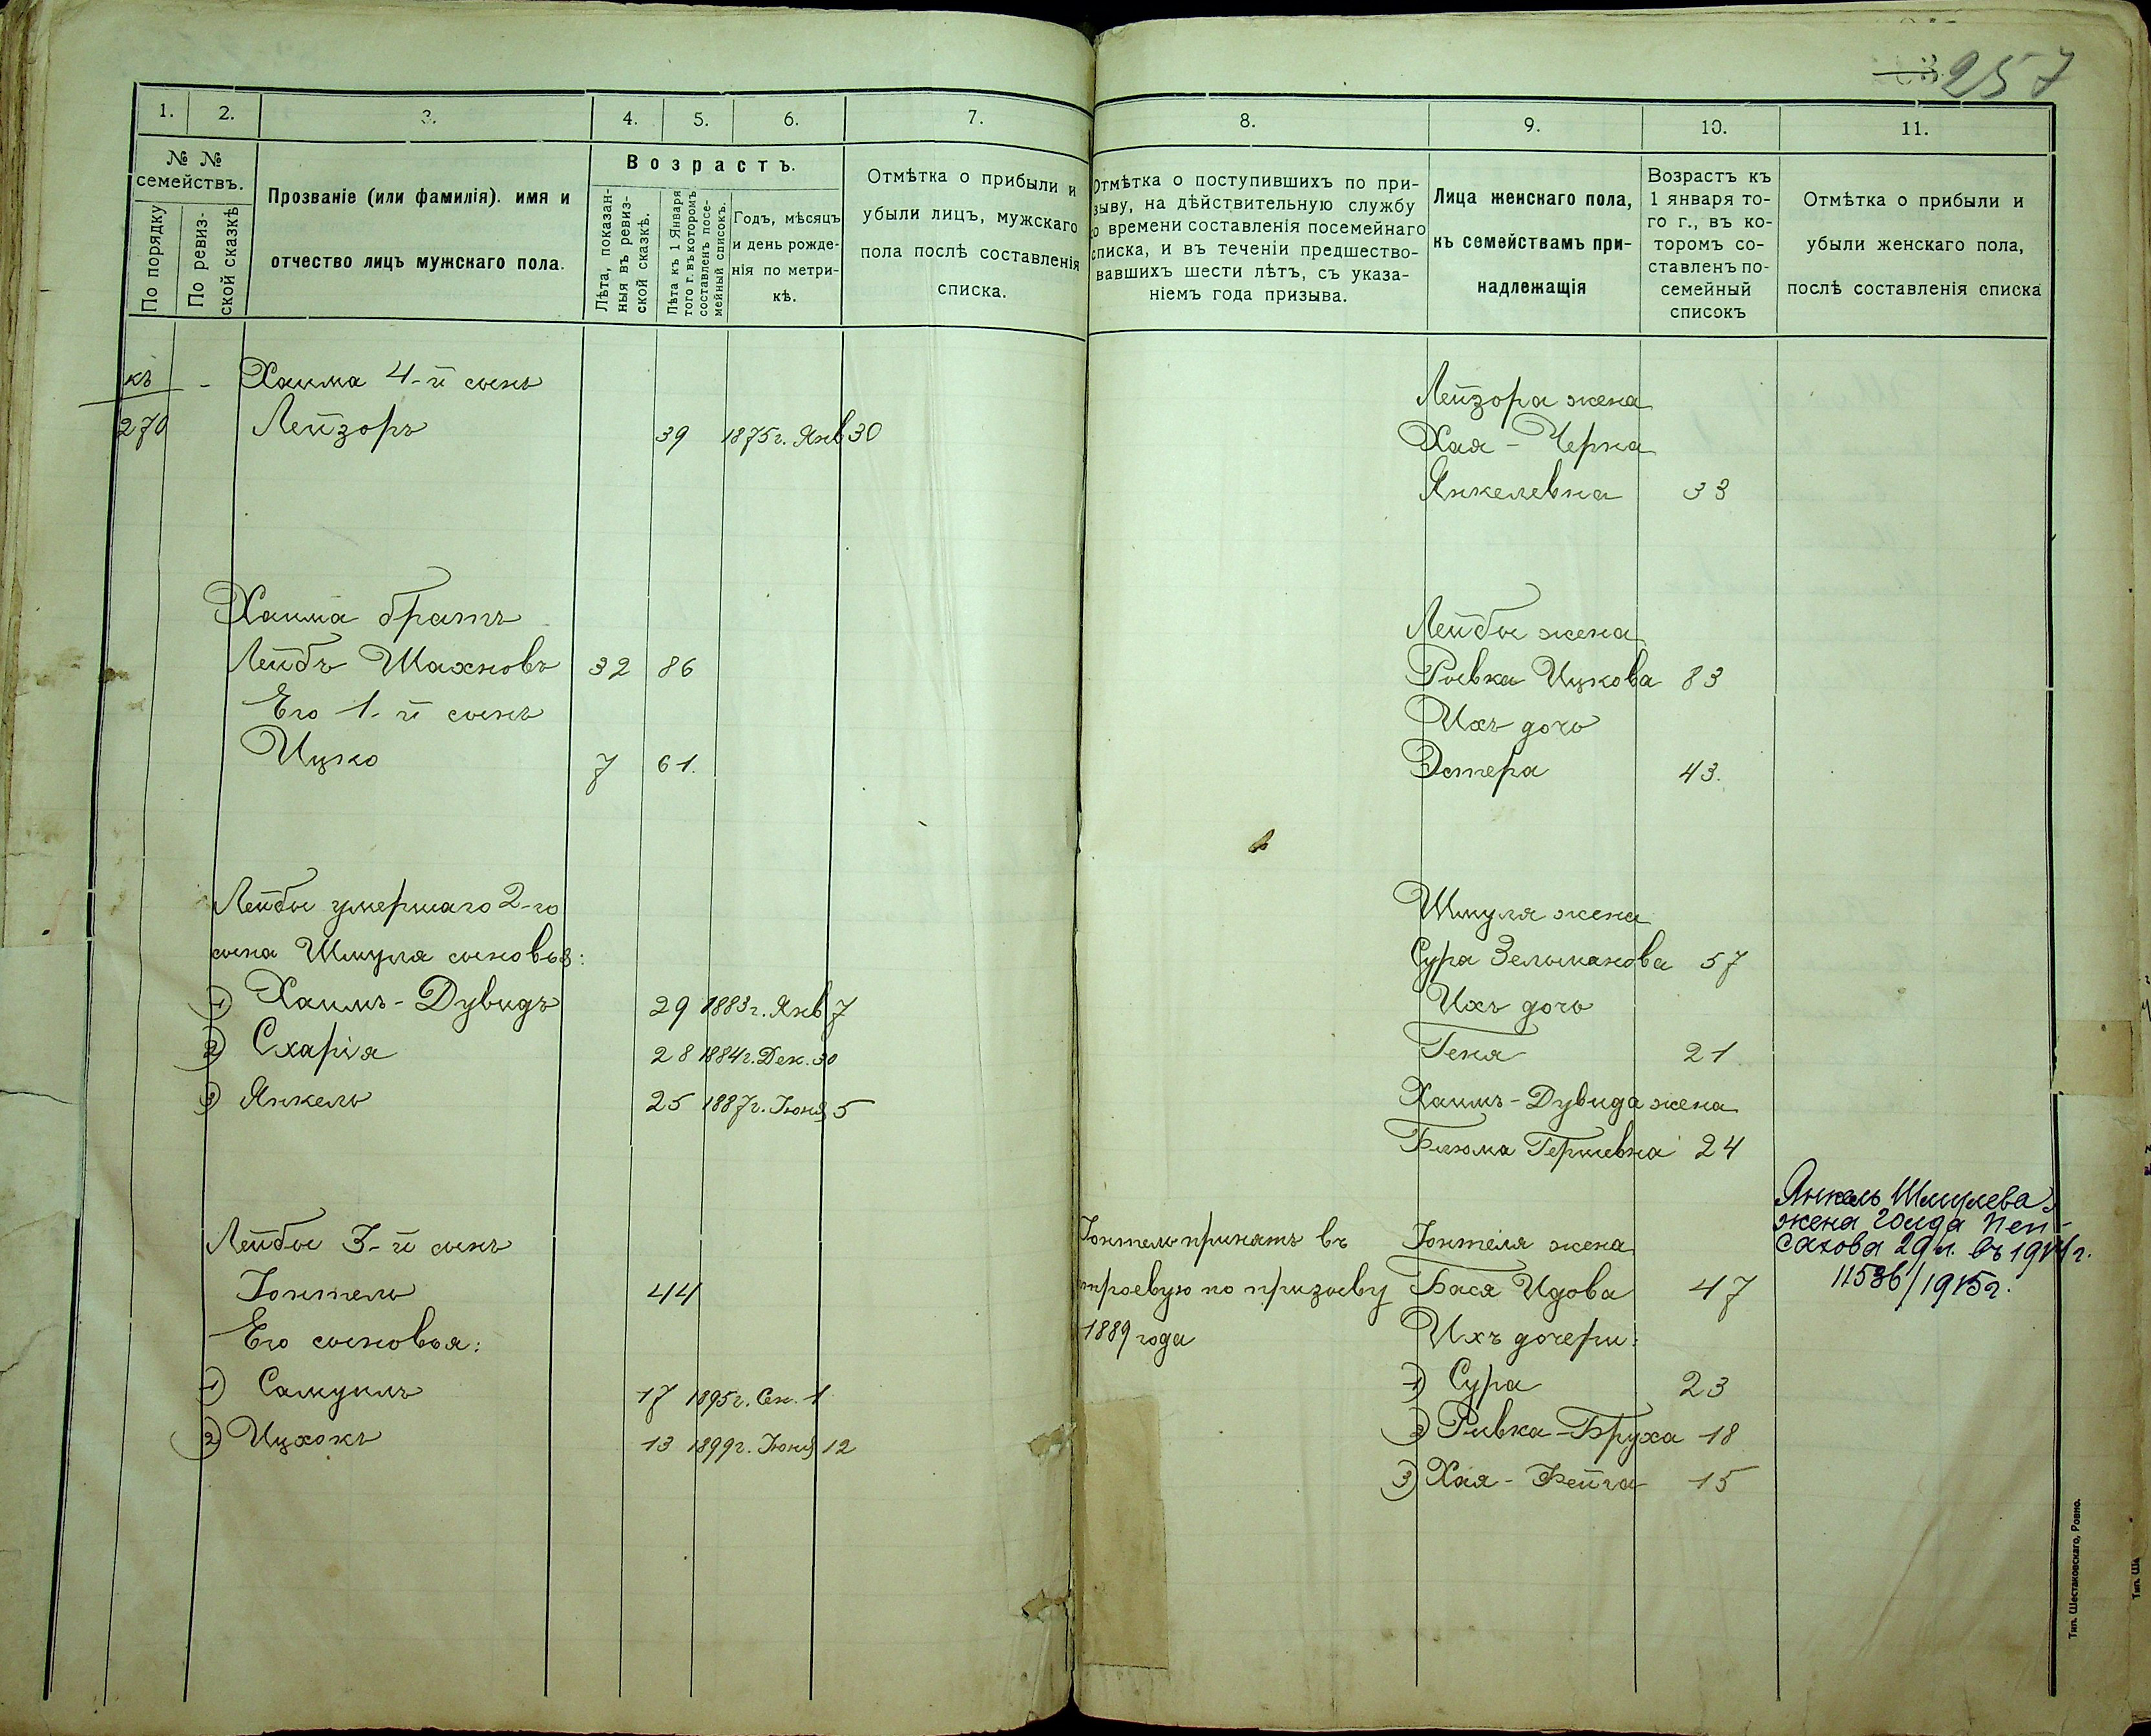 257
1.
2.
3.
4.
5.
6.
7.
№ №
семействъ.
По порядку
По ревиз-
ской сказкѣ
Прозваніе (или фамилія). имя и
отчество лицъ мужскаго пола.
Возрастъ.
Лѣта, показан-
ныя въ ревиз-
ской сказкѣ.
Лѣта къ 1 Января
того г. въ которомъ
составленъ посе-
мейный списокъ.
Годъ, мѣсяцъ
и день рожде-
нія по метри-
кѣ.
Отмѣтка о прибыли и
убыли лицъ, мужскаго
пола послѣ составленія
списка.
къ - Хаима 4-й сынъ
270 Лейзоръ 39 1875г. Янв 30
Хаима братъ
Лейбъ Шахновъ 32 86
Его 1-й сынъ
Ицко 7 61.
Лейбы умершаго 2-го
сына Шмуля сыновья:
1) Хаимъ-Дувидъ 29 1883г. Янв 7
2) Схарія 28 1884г. Дек. 30
3) Янкель 25 1887г. Іюня 5
Лейбы 3-й сынъ
Іонтель 44
Его сыновья:
1) Самуилъ 17 1895г. Сен. 1
2) Ицхокъ 13 1899г. Іюня 12
8.
9.
10.
11.
Отмѣтка о поступившихъ по при-
зыву, на дѣйствительную службу
о времени составленія посемейнаго
списка, и въ теченіи предшество-
вавшихъ шести лѣтъ, съ указа-
ніемъ года призыва.
Лица женскаго пола,
къ семействамъ при-
надлежащія
Возрастъ къ
1 января то-
го г., въ ко-
торомъ со-
ставленъ по-
семейный
списокъ
Отмѣтка о прибыли и
убыли женскаго пола,
послѣ составленія списка
Лейзора жена
Хая-Черна
Янкелевна 33
Лейбы жена
Рывка Ицкова 83
Ихъ дочь
Эстера 43.
Шмуля жена
Сура Зельманова 57
Ихъ дочь
Геня 21
Хаимъ-Дувида жена
Блюма Гершевна 24
Іонтель принятъ въ
строевую по призыву
1889 года
Іонтеля жена
Бася Идова 47
Ихъ дочери:
1) Сура 23
2) Ривка-Бруха 18
3) Хая-Фейга 15
Янкель Шмулева
жена Голда Пей-
сахова 29 л. въ 1914г.
11536/1915г.
Тип. Шестаковскаго, Ровно.
Тип. Ше